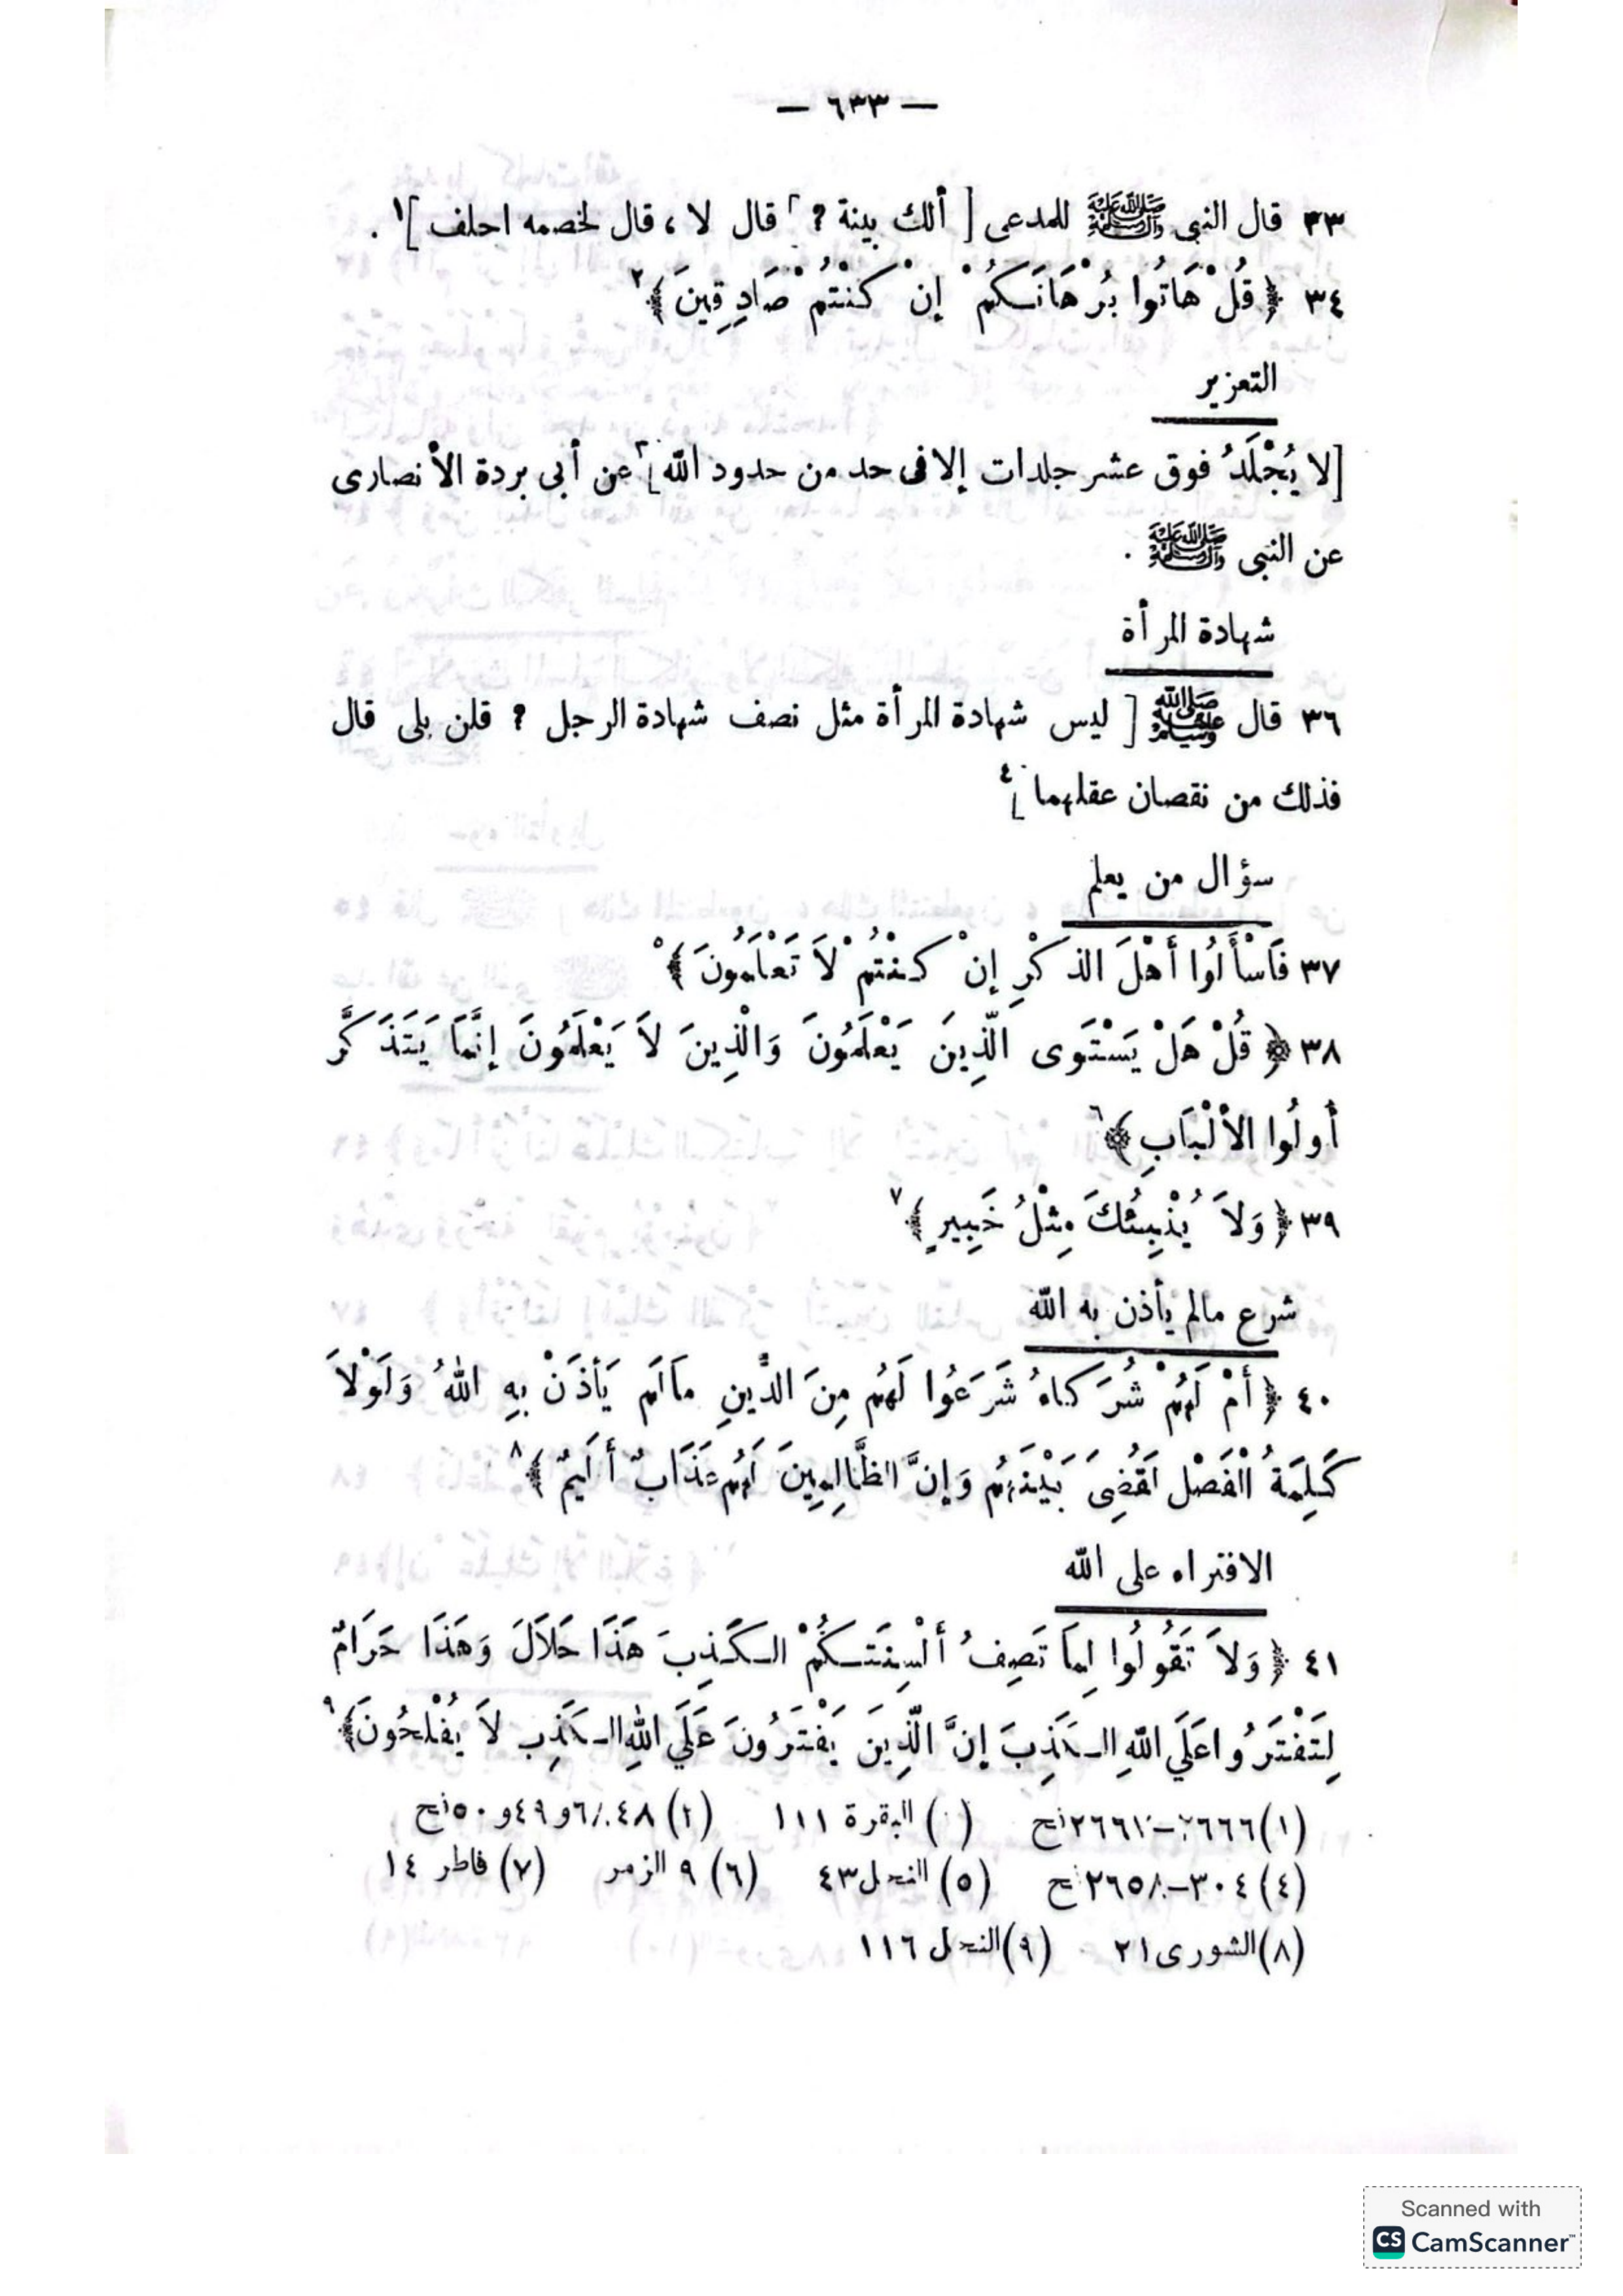 — ٦٣٣ —
٣٣ قال النبى ﷺ للمدعى [ ألك بينة ? قال لا ، قال لخصمه احلف ]١ .
٣٤ ﴿ قُلْ هَاتُوا بُرْهَانَكُمْ إِنْ كُنْتُمْ صَادِقِينَ ﴾٢
التعزير
[لا يُجْلَدُ فوق عشر جلدات إلا فى حد من حدود الله]٣ عن أبى بردة الأنصارى
عن النبى ﷺ .
شهادة المرأة
٣٦ قال ﷺ [ ليس شهادة المرأة مثل نصف شهادة الرجل ? قلن بلى قال
فذلك من نقصان عقلهما ]٤
سؤال من يعلم
٣٧ فَاسْأَلُوا أَهْلَ الذكْرِ إِنْ كُنْتُمْ لاَ تَعْلَمُونَ ﴾٥
٣٨ ﴿ قُلْ هَلْ يَسْتَوِى الَّذِينَ يَعْلَمُونَ وَالَّذِينَ لاَ يَعْلَمُونَ إِنَّمَا يَتَذَكَّرُ
أُولُوا الأَلْبَابِ ﴾٦
٣٩ ﴿ وَلاَ يُنْبِئُكَ مِثْلُ خَبِيرٍ ﴾٧
شرع مالم يأذن به الله
٤٠ ﴿ أَمْ لَهُمْ شُرَكَاءُ شَرَعُوا لَهُمْ مِنَ الدِّينِ مَالَمْ يَأْذَنْ بِهِ اللهُ وَلَوْلاَ
كَلِمَةُ الْفَصْلِ لَقُضِىَ بَيْنَهُمْ وَإِنَّ الظَّالِمِينَ لَهُمْ عَذَابٌ أَلِيمٌ ﴾٨
الافتراء على الله
٤١ ﴿ وَلاَ تَقُولُوا لِمَا تَصِفُ أَلْسِنَتُكُمْ الكَذِبَ هَذَا حَلاَلَ وَهَذَا حَرَامٌ
لِتَفْتَرُوا عَلَي اللهِ الكَذِبَ إِنَّ الَّذِينَ يَفْتَرُونَ عَلَي اللهِ الكَذِبِ لاَ يُفْلِحُونَ ﴾٩
(١) ٢٦٦٦–ح ( ) البقرة ١١١ (٣) ٦/٤٨ و ٤٩ و ٥٠ ح
(٤) ٣٠٤–٢٦٥٨ ح (٥) النحل ٤٣ (٦) ٩ الزمر (٧) فاطر ١٤
(٨) الشورى ٢١ (٩) النحل ١١٦
Scanned with
CS CamScanner™